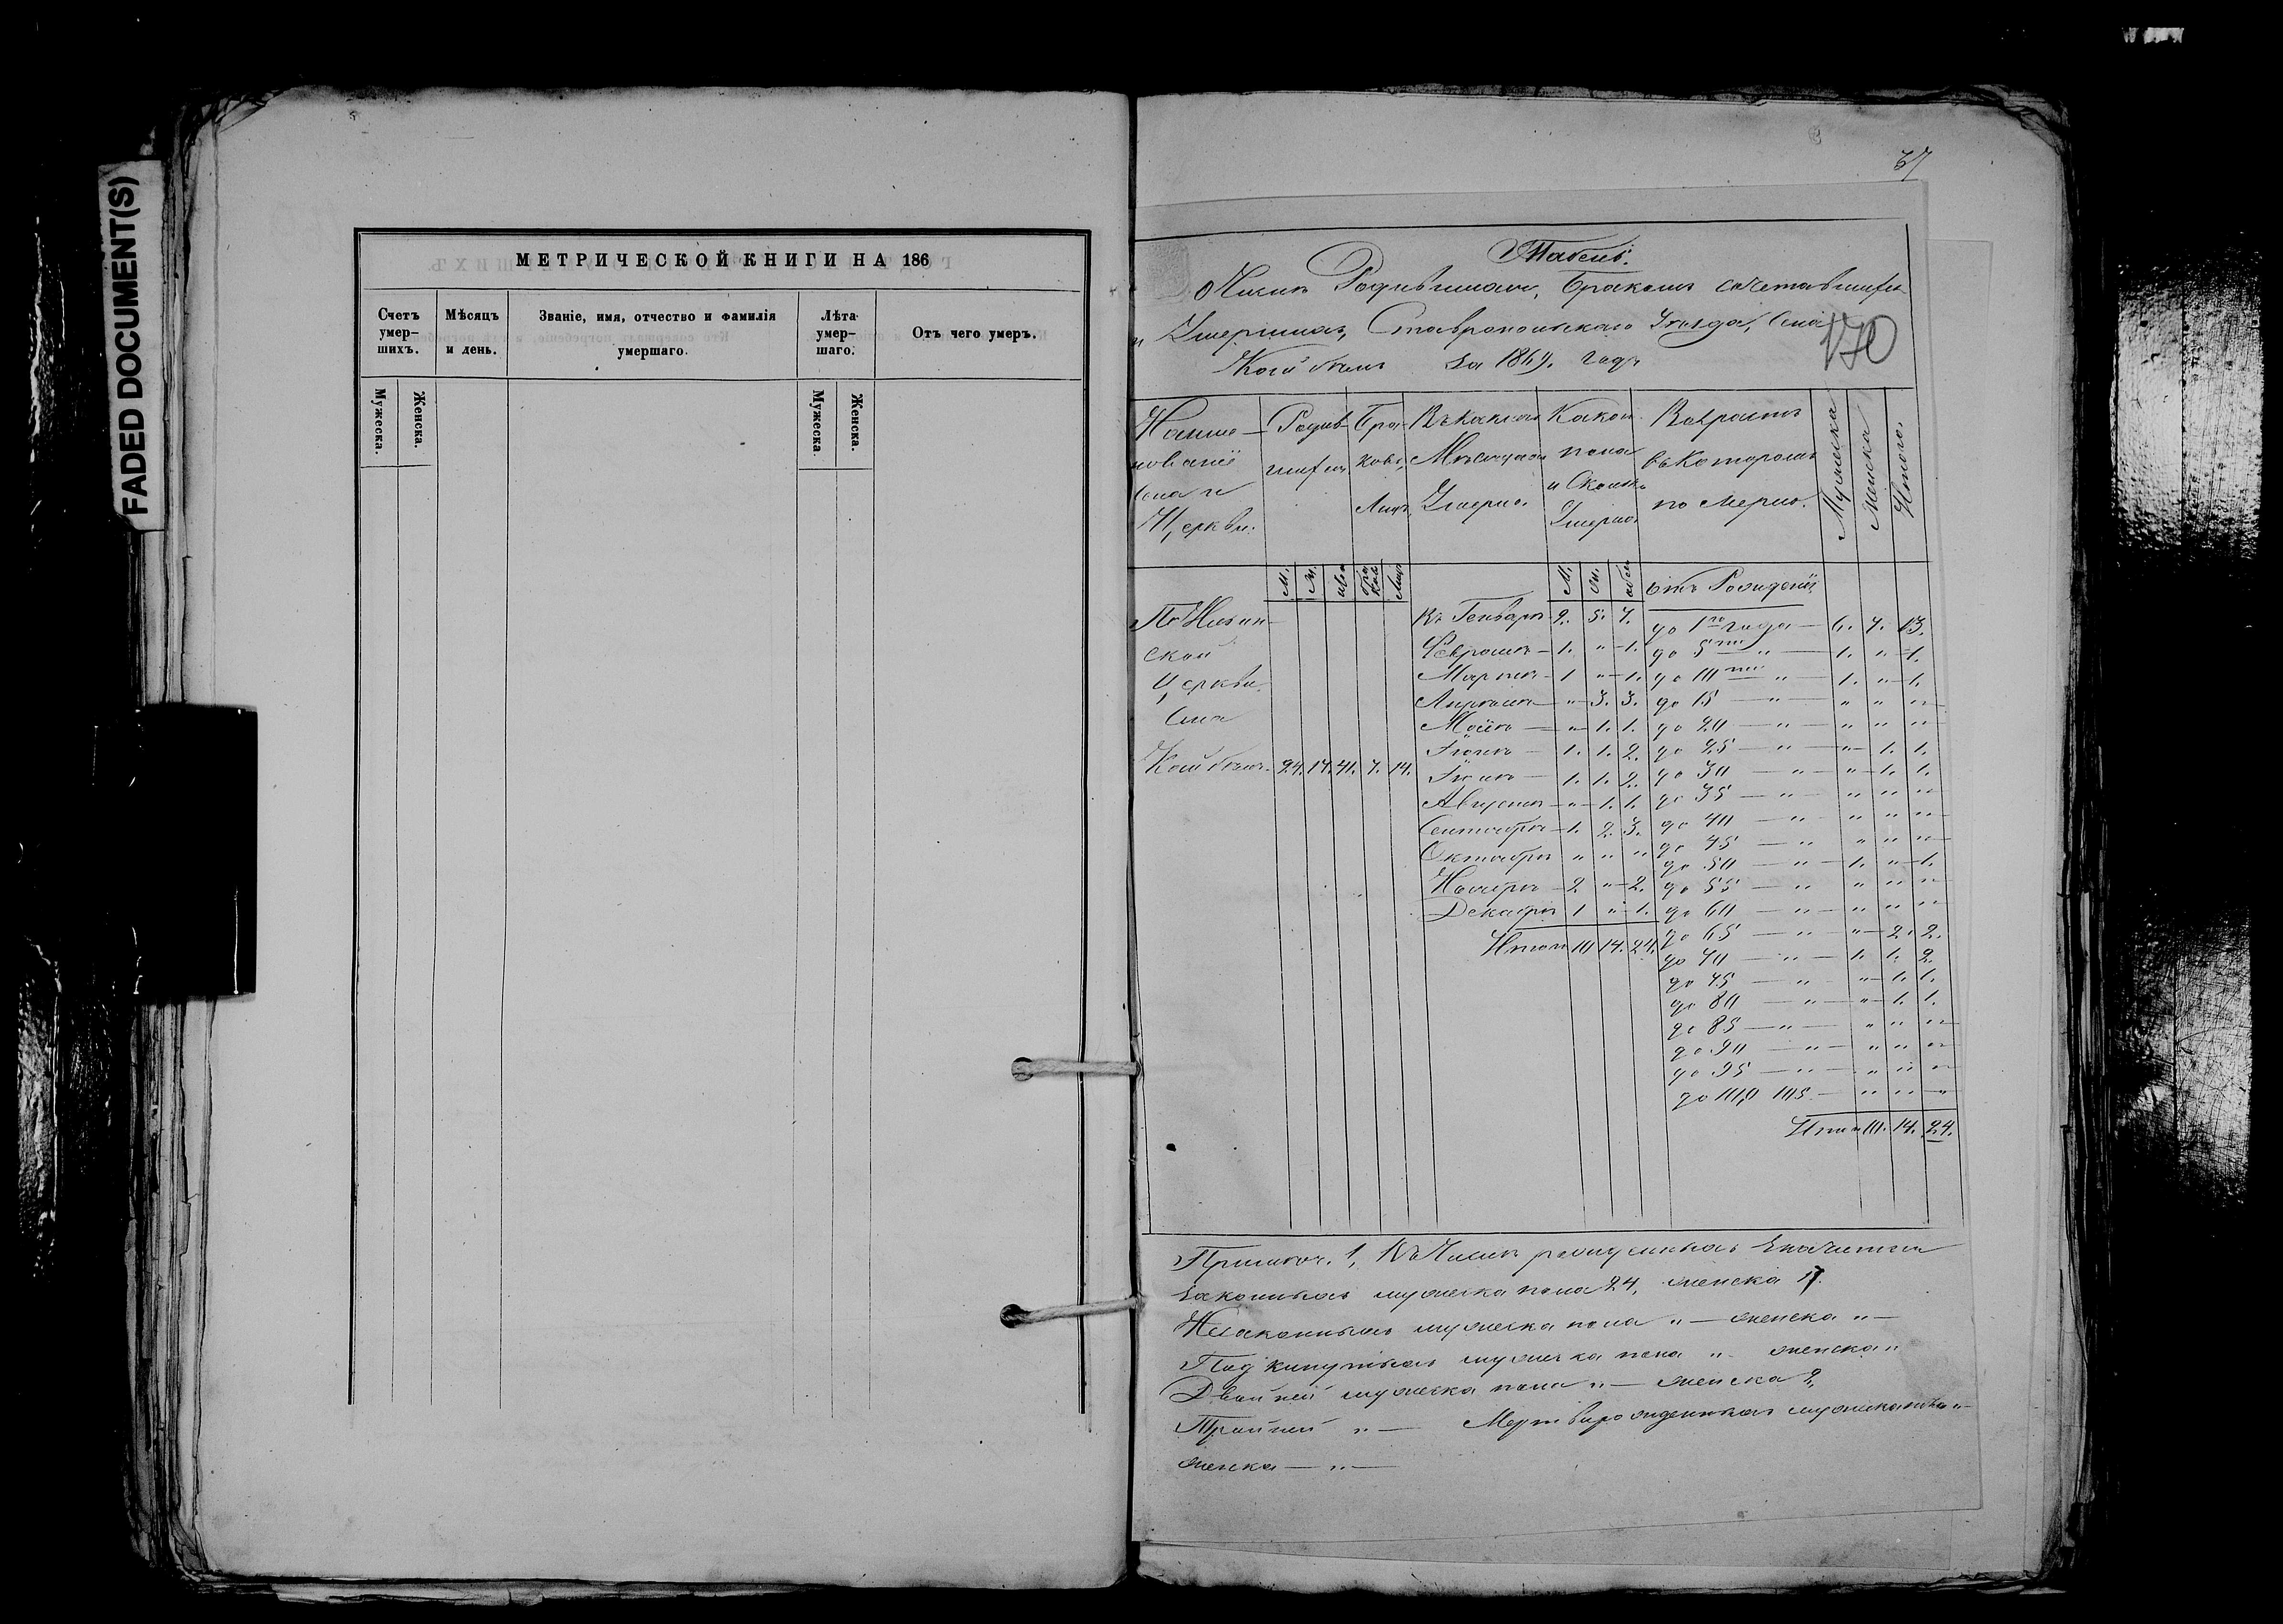 FADED DOCUMENT(S)
МЕТРИЧЕСКОЙ КНИГИ НА 186
Счетъ умер-шихъ.
Мѣсяцъ и день.
Званіе, имя, отчество и фамилія умершаго.
Лѣта умер-шаго.
Отъ чего умеръ.
Мужеска.
Женска.
Мужеска
Женска.
67
Табель.
Числа Родившихся, Бракомъ сочетавшихся
и Умершихъ, Ставропольскаго Уѣзда, Села
за 1869. годъ
170
Наиме-нованіе Села и Церкви.
Родив-шихся
Бра-ковъ, Лицъ.
Въ какихъ Мѣсяцахъ Умерло.
Какой пола и Сколько Умерло.
Возрастъ въ Которомъ по Мерло.
Мужеска
Женска
Итого.
М. Ж. обоя бра-ковъ Лицъ
М. Ж. обоя
Отъ Рожденія
Церкви
Села
24. 17. 41. 7. 14.
Въ Генварѣ 2. 5. 7.
Февралѣ 1. " 1.
Мартѣ 1 " 1.
Апрѣлѣ " 3. 3.
Маѣ " 1. 1.
Іюнѣ 1. 1. 2.
Іюлѣ 1. 1. 2.
Августѣ " 1. 1.
Сентябрѣ 1. 2. 3.
Октябрѣ " " "
Ноябрѣ 2 " 2.
Декабрѣ 1 " 1.
Итого 10 14. 24.
до 1го года 6. 7. 13.
до 5ти " 1. " 1.
до 10ти " 1. " 1.
до 15 " " " "
до 20 " " " "
до 25 " " 1. 1.
до 30 " " 1. 1.
до 35 " " " "
до 40 " " " "
до 45 " " " "
до 50 " 1. " 1.
до 55 " " " "
до 60 " " " "
до 65 " " 2. 2.
до 70 " 1. 1. 2.
до 75 " " 1. 1.
до 80 " " 1. 1.
до 85 " " " "
до 90 " " " "
до 95 " " " "
до 100, 105 " " "
Итого 10. 14. 24.
Примѣч. 1, Въ Числѣ рожденныхъ Значится
законныхъ мужеска пола 24, женска 17.
Незаконныхъ мужеска пола " — женска " —
Подкинутыхъ мужеска пола " женска "
Двойней мужеска пола " — женска 2,
Тройней " — Мертворожденныхъ мужеска пола "
женска — " —